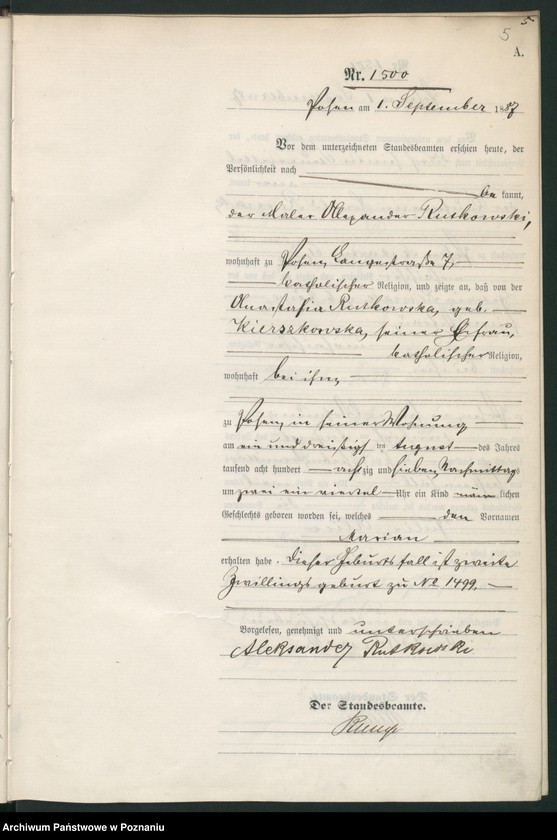 5
5
A.
Nr. 1500
Posen am 1. September 1887
Vor dem unterzeichneten Standesbeamten erschien heute, der
Persönlichkeit nach
be kannt,
der Maler Alexander Rutkowski,
wohnhaft zu Posen, Langestraße 7,
katholischer Religion, und zeigte an, daß von der
Anastasia Rutkowska, geb.
Kierszkowska, seiner Ehefrau,
katholischer Religion,
wohnhaft bei ihm,
zu Posen, in seiner Wohnung
am ein und dreißigsten August des Jahres
tausend acht hundert achtzig und sieben, Nachmittags
um zwei ein viertel Uhr ein Kind männlichen
Geschlechts geboren worden sei, welches den Vornamen
Marian
erhalten habe. Dieser Geburtsfall ist zweite
Zwillingsgeburt zu No 1499.
Vorgelesen, genehmigt und unterschrieben
Aleksander Rutkowski
Der Standesbeamte.
Archiwum Państwowe w Poznaniu